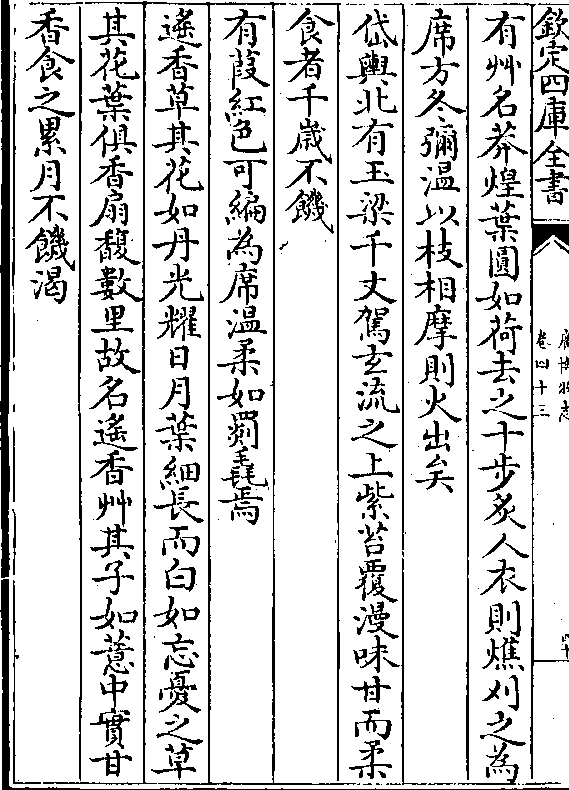 欽定四庫全書
廣博物志
卷四十三
有艸名莽煌葉圓如荷去之十步炙人衣則燋刈之為
席方冬彌温以枝相摩則火出矣
岱輿北有玉梁千丈駕玄流之上紫苔覆漫味甘而柔
食者千歳不饑
有葭紅色可編為席温柔如罽毳焉
遙香草其花如丹光耀日月葉細長而白如忘憂之草
其花葉俱香扇馥數里故名遙香艸其子如薏中實甘
香食之累月不饑渴